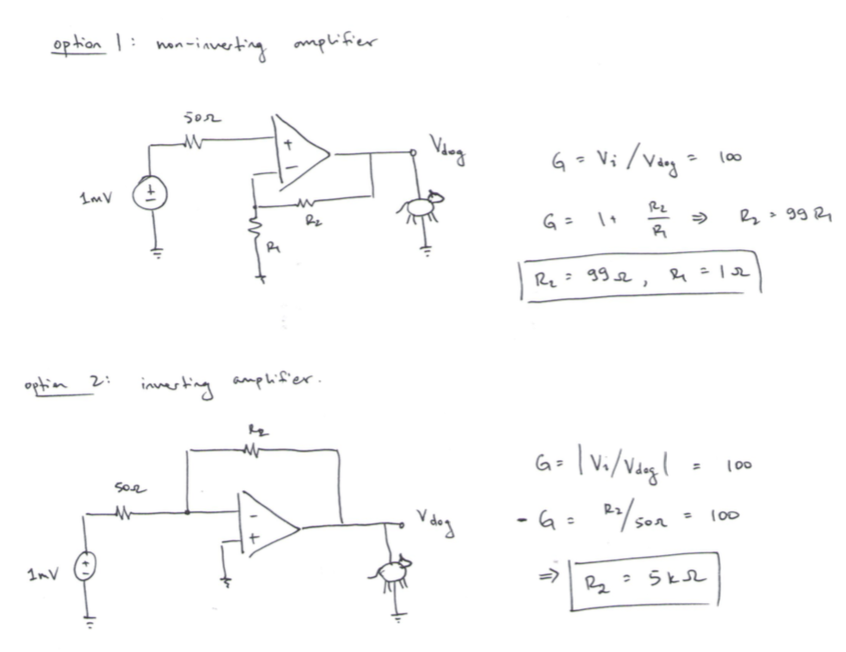 option 1: non-inverting amplifier
50Ω
+
-
Vdog
1mV
±
R2
R1
G = Vi / Vdog = 100
G = 1 + R2/R1 ⇒ R2 = 99 R1
R2 = 99 Ω, R1 = 1 Ω
option 2: inverting amplifier.
R2
50Ω
-
+
Vdog
1mV
±
G = |Vi/Vdog| = 100
- G = R2/50Ω = 100
⇒ R2 = 5 k Ω